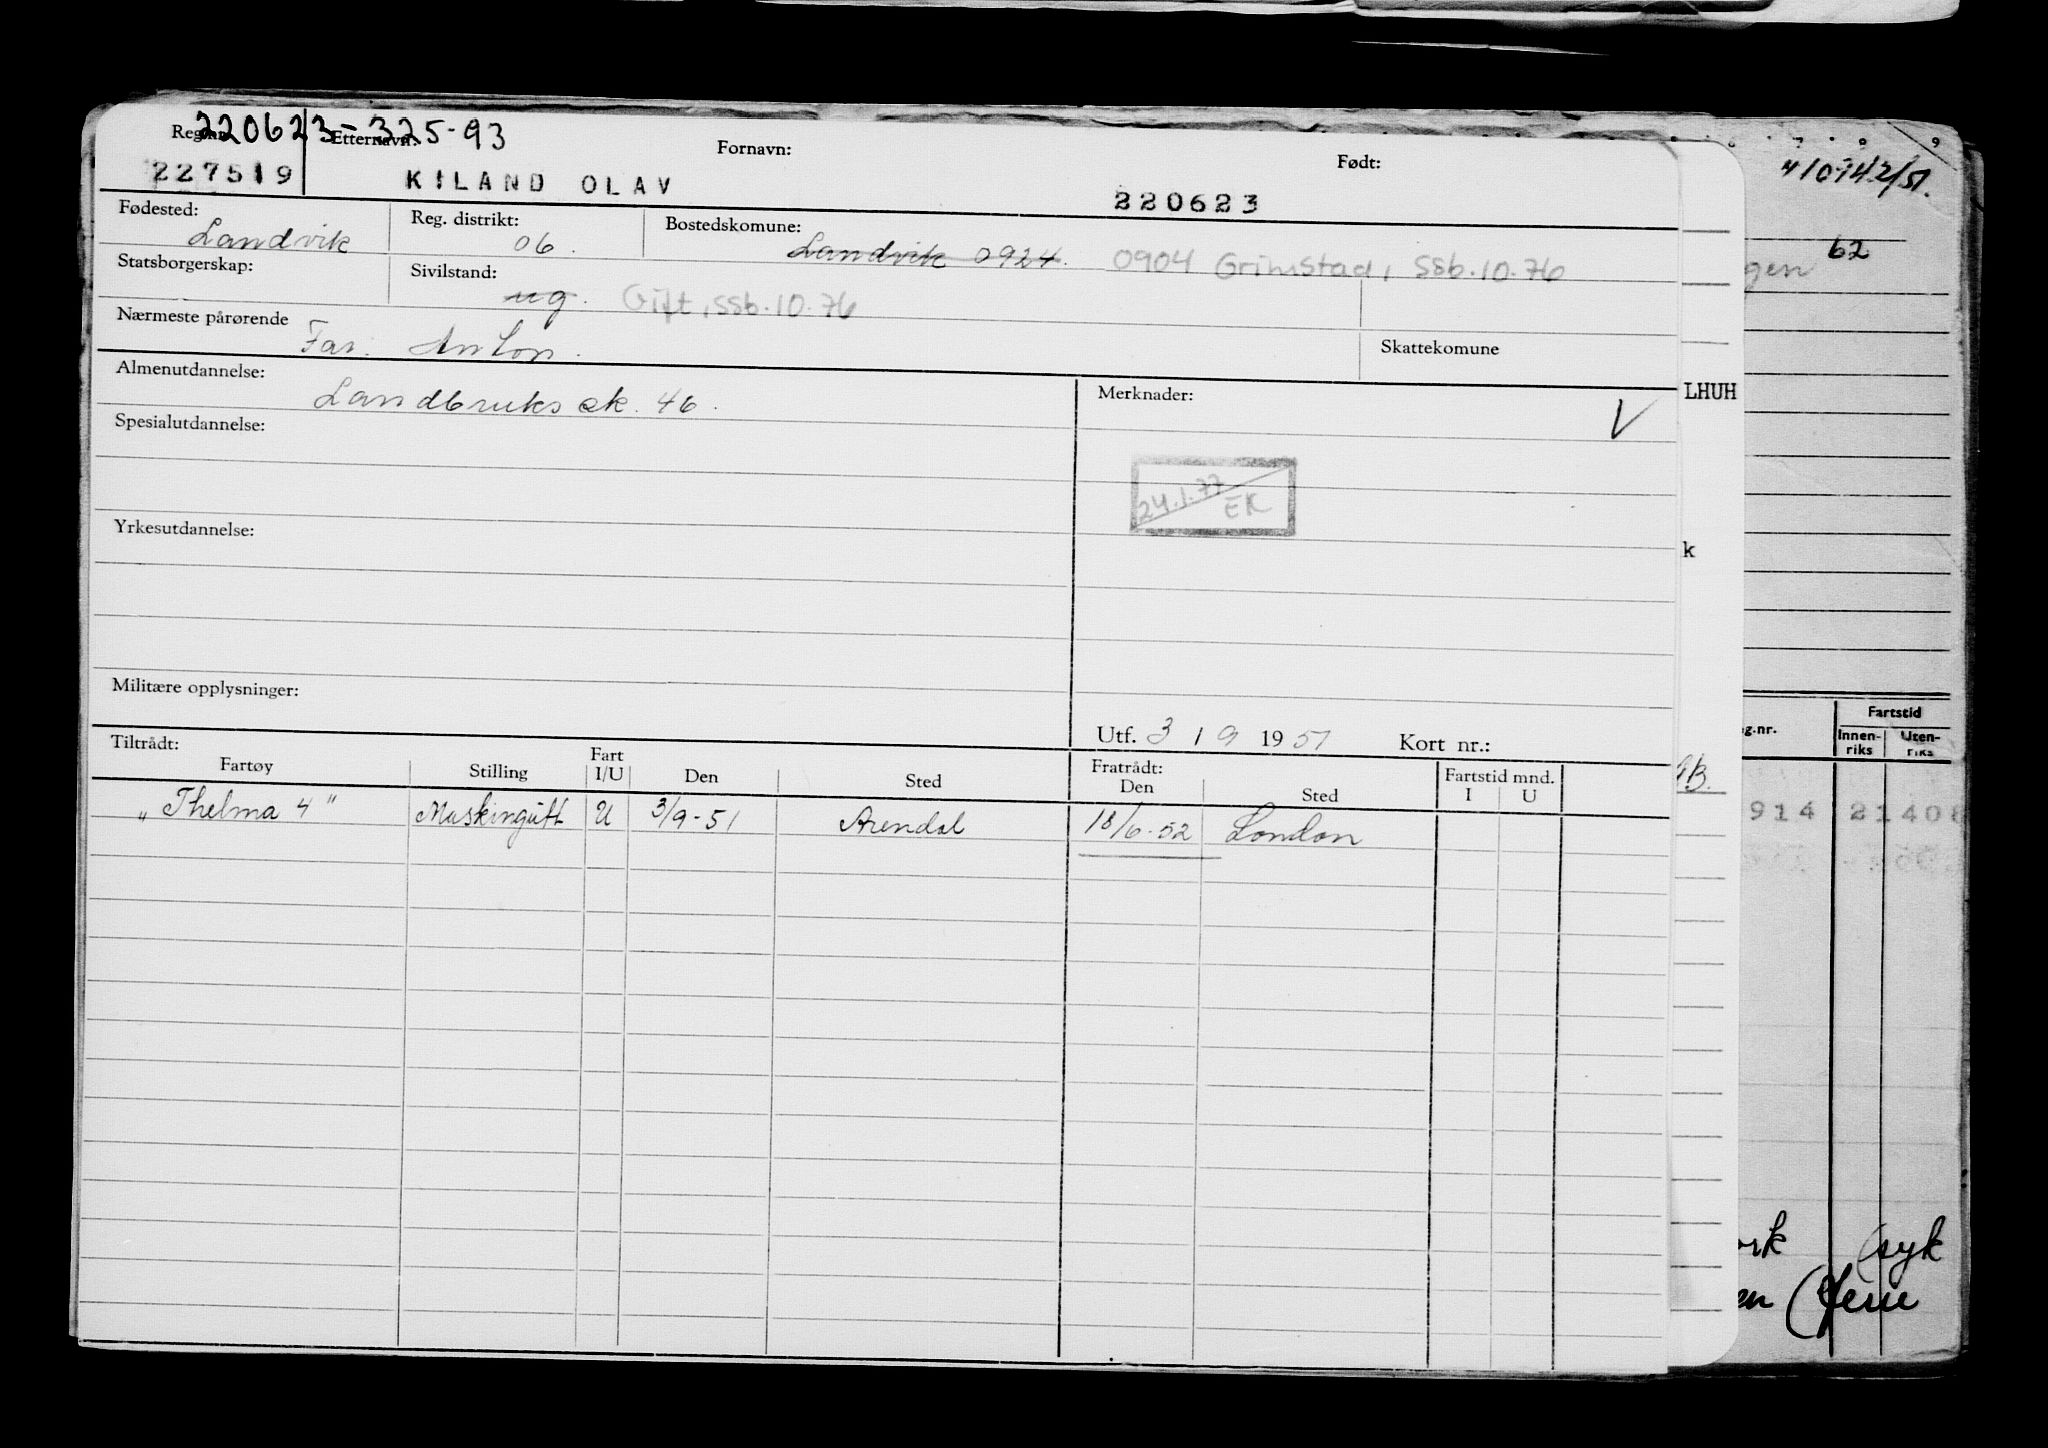 220623-325-93
Reg.nr. Etternavn: Fornavn: Født:
227519 KILAND OLAV 220623
Fødested: Reg. distrikt: Bostedskomune:
Landvik 06. Landvik 0924. 0904 Grimstad, ssb.10.76
Statsborgerskap: Sivilstand:
ug. Gift, ssb.10.76
Nærmeste pårørende Skattekomune
Far. Anton.
Almenutdannelse: Merknader:
Landbruks sk. 46. V
Spesialutdannelse:
24.1.77
EK
Yrkesutdannelse:
Militære opplysninger:
Utf. 3 / 9 1951 Kort nr.:
Tiltrådt: Fratrådt:
Fartøy Stilling Fart I/U Den Sted Den Sted Fartstid mnd. I U
"Thelma 4" Maskingutt U 3/9-51 Arendal 18/6-52 London
LHUH
k
9
62
gen
g.nr. Fartstid
Innenriks Uten-riks
914 21408
ork (syk
en